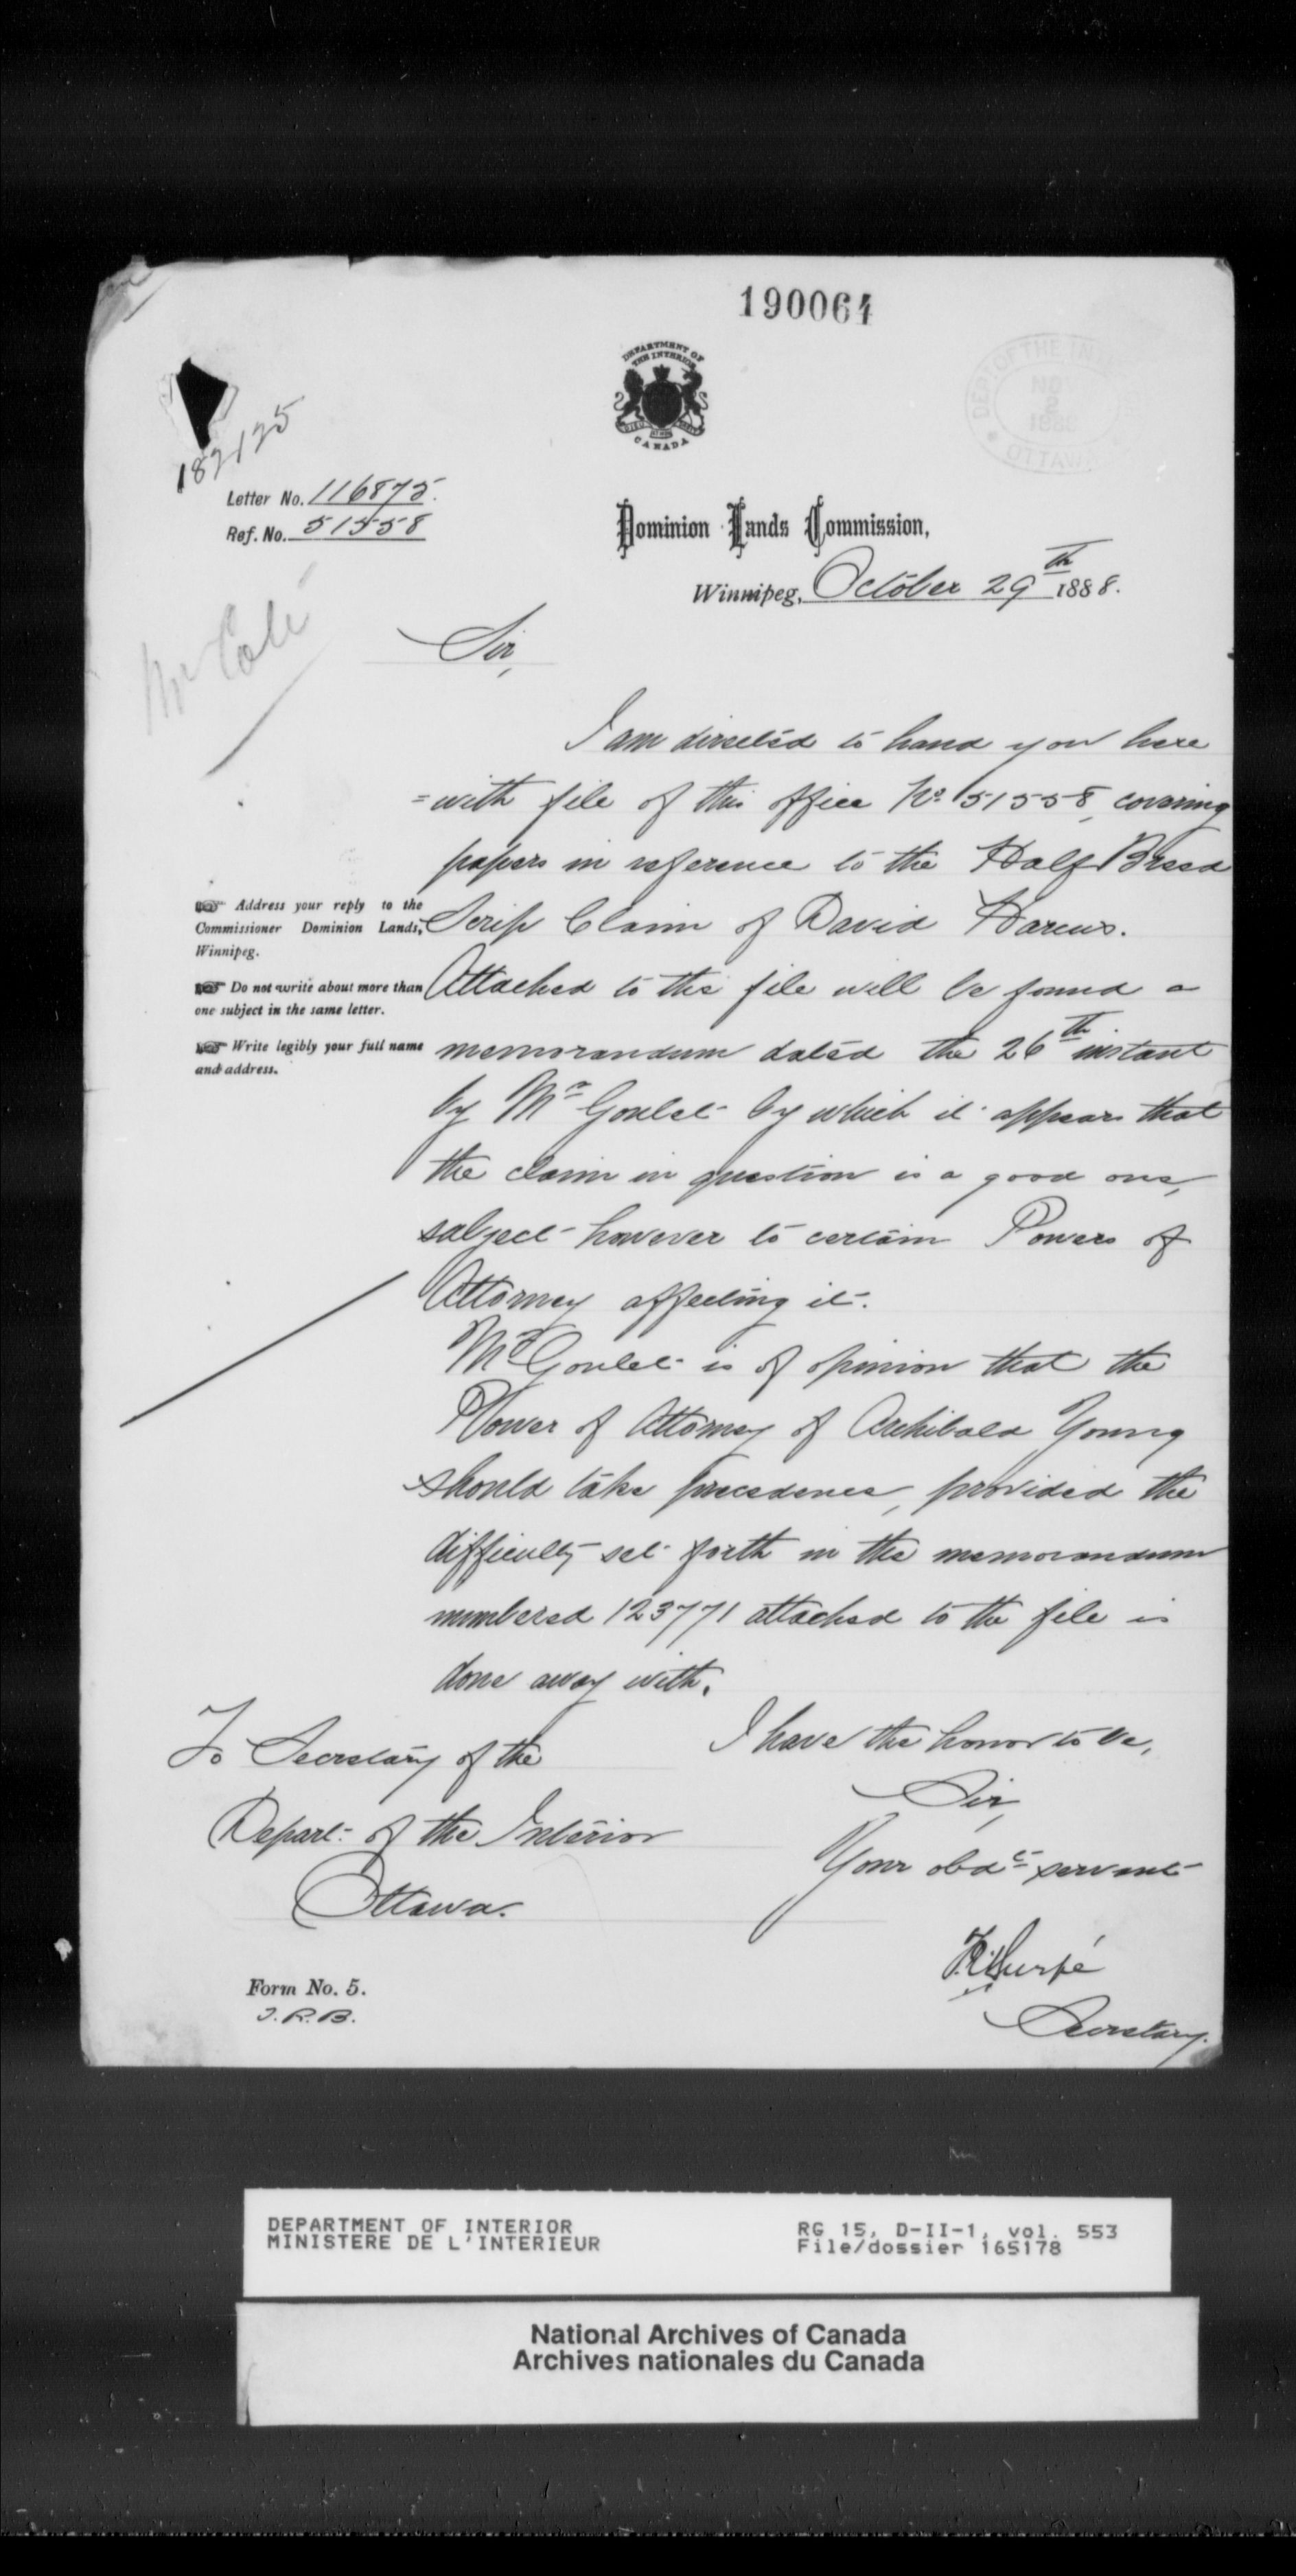 190061
DEPARTMENT OF
THE INTERIOR
CANADA
DEPT OF THE
NO
2
188
OTTAWA
182125
Letter No. 116875.
Ref. No. 51558
Dominion Lands Commission,
Winnipeg, October 29th 1888.
Mr Coté
Sir,
I am directed to hand you here
=with file of this office No. 51558, covering
papers in reference to the Half Breed
Scrip Claim of David Harcus.
Attached to the file will be found a
memorandum dated the 26th instant
by Mr Goulet by which it appears that
the claim in question is a good one,
subject however to certain Powers of
Attorney affecting it.
Mr Goulet is of opinion that the
Power of Attorney of Archibald Young
should take precedence, provided the
difficulty set forth in the memorandum
numbered 123771 attached to the file is
done away with.
☞ Address your reply to the
Commissioner Dominion Lands,
Winnipeg.
☞ Do not write about more than
one subject in the same letter.
☞ Write legibly your full name
and address.
I have the honor to be,
Sir,
Your obdt servant
Secretary.
To Secretary of the
Depart. of the Interior
Ottawa.
Form No. 5.
J.R.B.
DEPARTMENT OF INTERIOR
MINISTERE DE L'INTERIEUR
RG 15, D-II-1, vol. 553
File/dossier 165178
National Archives of Canada
Archives nationales du Canada